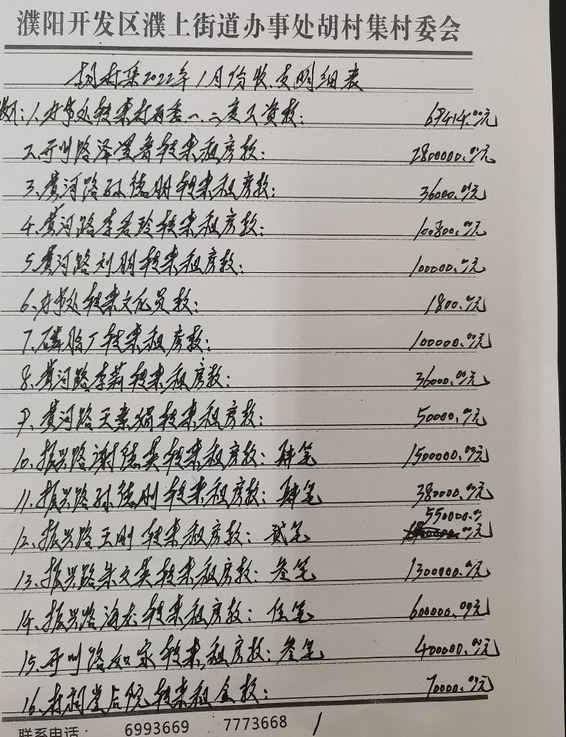 濮阳开发区濮上街道办事处胡村集村委会
胡村集2022年1月份收支明细表
1.办事处转来村两委一、二度工资款： 69414.00元
2.开州路泽贤看转来租房款： 2800000.00元
3.黄河路孙德明转来租房款： 36000.00元
4.黄河路李秀玲转来租房款： 100800.00元
5.黄河路刘明转来租房款： 100000.00元
6.办事处转来文化员款： 1800.00元
7.磷脂厂转来租房款： 100000.00元
8.黄河路李莉转来租房款： 36000.00元
9.黄河路王素娟转来租房款： 50000.00元
10.振兴路谢德英转来租房款：肆笔 1500000.00元
11.振兴路孙德刚转来租房款：肆笔 380000.00元
12.振兴路王刚转来租房款：贰笔 550000.00元
13.振兴路朱文英转来租房款：叁笔 1300000.00元
14.振兴路海龙转来租房款：伍笔 600000.00元
15.开州路如家转来租房款：叁笔 400000.00元
16.村祠堂后院转来租金款： 70000.00元
联系电话： 6993669 7773668